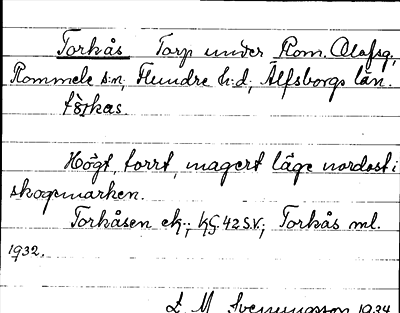 Torkås Torp under Rom. Olofsg,
Rommele s:n, Flundre h:d, Älfsborgs län.
Högt, torrt, magert läge nordost i
skogsmarken.
Torkåsen ek.; KG. 42 S.V.; Torkås ml.
1932.
L M Svenungsson 1934